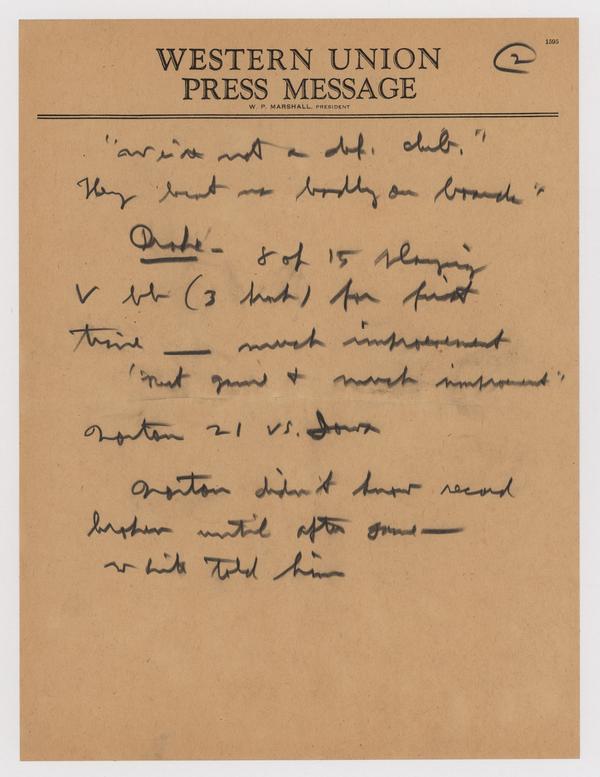 1595
2
WESTERN UNION
PRESS MESSAGE
W. P. MARSHALL, PRESIDENT
"we're not a def. club."
They beat us badly on boards"
Drake - 8 of 15 playing
V bb (3 hurt) for first
time — much improvement
"Next game + much improvement"
Norton 21 vs. Iowa
Norton didn't know record
broken until after game —
White told him